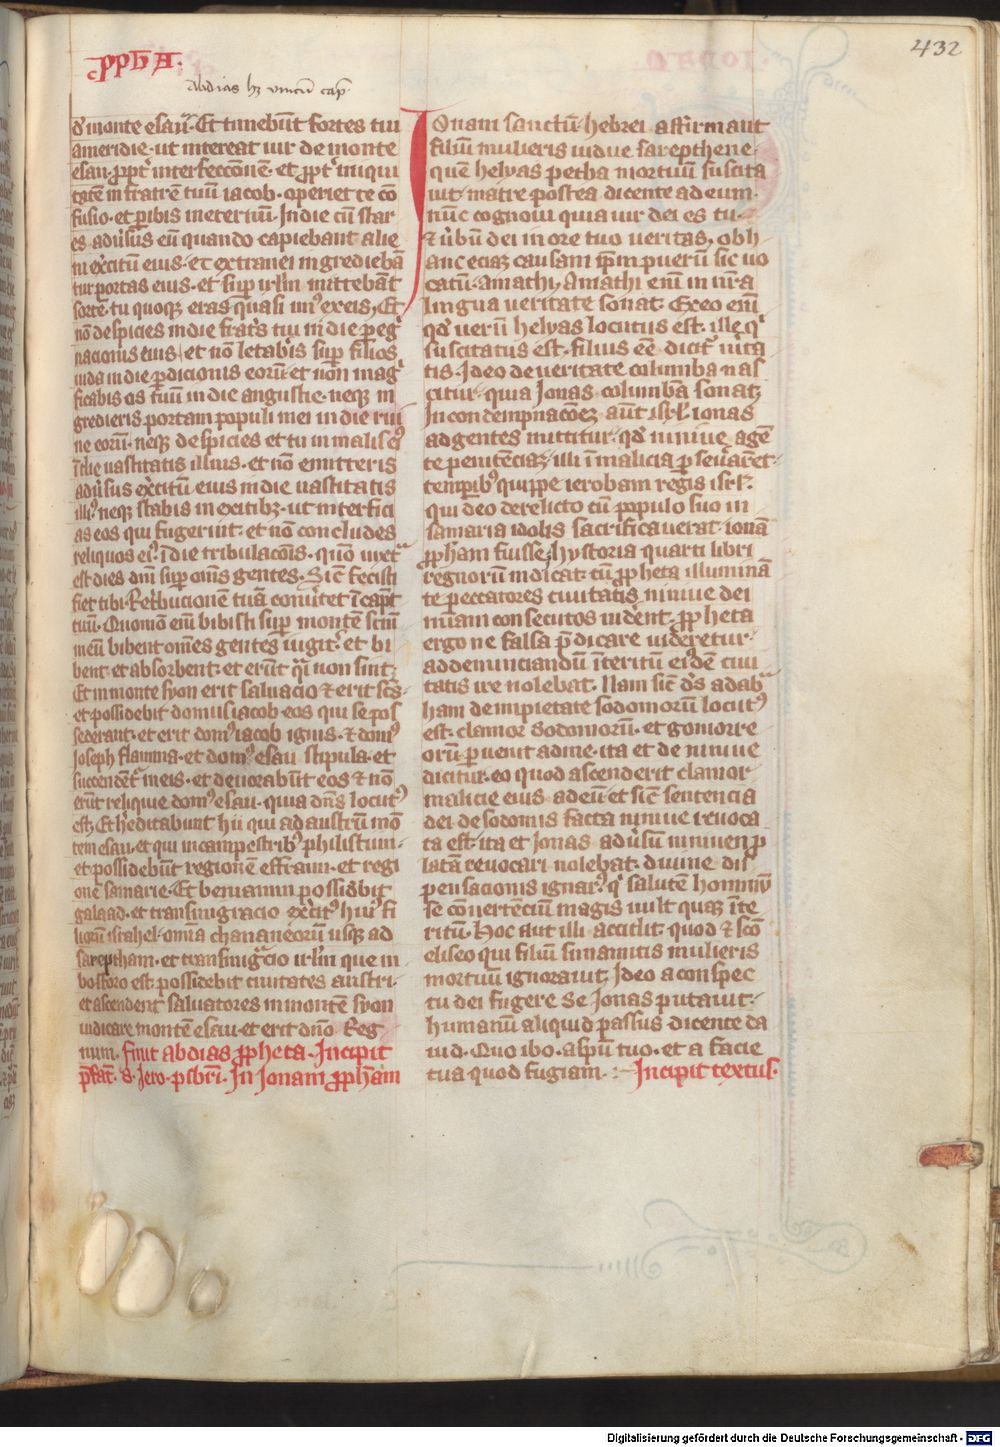 432
ꝓph̄A.
Abdias hꝫ vnicū cap̄
d̕ monte esau. Et timebūt fortes tui
ameridie. ut intereat uir de monte
esau. ꝓpt̕ interfeccōnem. et ꝓpt̕ iniqui
tatē in fratrē tuū iacob. operiet te cō
fusio. et ꝑibis ineternū. In die cū star
es adūsus eū quando capiebant alie
ni ex̕citū eius. et extranei ingrediebā
tur portas eius. et suꝑ irl̄m mittebāt
sortē. tu quoqꝫ eras quasi un᾿ ex eis. Et
nō despicies in die frat̕s tui in die ꝑeg̕
nacionis eius. et nō letab̕is suꝑ filios
iuda in die ꝑdicionis eorū. et non mag̕
ficabis os tuū in die angustie. neqꝫ in
gredieris portam populi mei in die rui
ne eorū. neqꝫ despicies et tu in malis ei᾿
ī die uastitatis illius. et nō emitteris
adūsus ex̕citū eius in die uastitatis
illi᾿ neqꝫ stabis in exitibꝫ. ut interfici
as eos qui fugerint. et nō concludes
reliquos ei᾿ ī die tribulacōis. quō iuxta
est dies dn̄i suꝑ om̄s gentes. Sic̄ fecisti
fiet tibi. Ret̕bucionē tuā conūtet ī capt̕
tuū. Quoniā eni bibisti suꝑ montē sc̄m
meū bibent om̄es gentes iugit̕. et bi
bent. et absorbent. et erūt q̕i non sint.
Et in monte syon erit saluacio ⁊ erit sc̄s.
et possidebit domus iacob eos qui se pos
sederant. et erit dom᾿ iacob ignis. ⁊ dom᾿
ioseph flamma. et dom᾿ esau stipula. et
succendent̕ in eis. et deuorabūt eos ⁊ nō
erūt reliquie dom᾿ esau. quia dn̄s locut᾿
est. Et h̕editabunt hii qui ad austrū mō
tem esau. et qui in campestribꝫ philistiim.
et possidebūt regionē effraim. et regi
onē samarie. Et beniamin possidebit
galaad. et transmigracio ex̕cit᾿ hui᾿ fi
liorū israhel. omia chananeorū usqꝫ ad
sareptham. et transmig̕cio irl̄m que in
bosforo est. possidebit ciuitates austri.
et ascendent saluatores in montē syon
iudicare montē esau. et erit dn̄o Reg
num. Finit abdias ꝓpheta. Incipit
p̄fat̕. s. Jero. p̄sbri. In Jonam ꝓph̄am
IQuam sanctū. hebrei affirmant
filiū mulieris uidue sarepthene.
quē helyas ꝓpetha mortuū suscita
uit. matre postea dicente ad eum.
nūc cognoui quia uir dei es tu.
⁊ ūbū dei in ore tuo ueritas. obh
anc eciaꝫ causam ip̄m puerū sic uo
catū. Amathi. Amathi eni in nr̄a
lingua ueritatē sonat. Ex eo eni
qd̕ uerū helyas locutus est. ille q̕
suscitatus est. filius eē dicit̕ uita
tis. Ideo de ueritate columba nas
citur. quia Jonas columbā sonat.
In condempnacōeꝫ aūt isrl̄. ionas
ad gentes mittitur. qd̕ niniue agē
te penitenciaꝫ. illi ī malicia ꝑseuāret.
temporibꝫ quippe ierobam regis isrl̄.
qui deo derelicto cū populo suo in
samaria idolis sacrificauerat. ionā
ꝓpham fuisse. hystoria quarti libri
regnorū indicat. cū ꝓpheta illuminā
te peccatores ciuitatis niniue dei
ueniam consecutos uident. ꝓpheta
ergo ne falsa p̄dicare uideretur.
ad denunciandū īteritū ei᾿dē ciui
tatis ire nolebat. Nam sic d̕s ad ab̕a
ham de impietate sodomorū locut᾿
est. clamor sodomorū. et gomorre
orū ꝑuenit ad me. ita et de niniue
dicitur. eo quod ascenderit clamor
malicie eius ad eū et sic̄ sentencia
dei de sodomis facta niniue reuoca
ta est. ita et Jonas adūsū niniuen ꝓ
latam reuocari nolebat. diuine dis
pensacionis ignar᾿. q̕ salutē hominū
se cōuertenciū magis uult quaꝫ īte
ritū. Hoc aut illi accidit. quod ⁊ sc̄o
eliseo qui filiū sunamitis mulieris
mortuū ignorauit. Ideo a conspec
tu dei fugere se Jonas putauit.
humanū aliquid passus dicente da
uid. Quo ibo. a spū tuo. et a facie
tua quod fugiam. :~ Incipit textus.
Digitalisierung gefördert durch die Deutsche Forschungsgemeinschaft - DFG